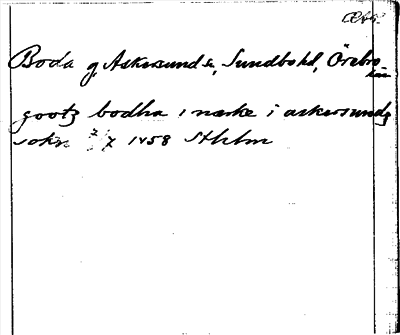 Boda g, Askersunds, Sundbo hd, Örebro
län
gootz bodha i nærke i askersundz
sokn 2/7 1458 Sthlm